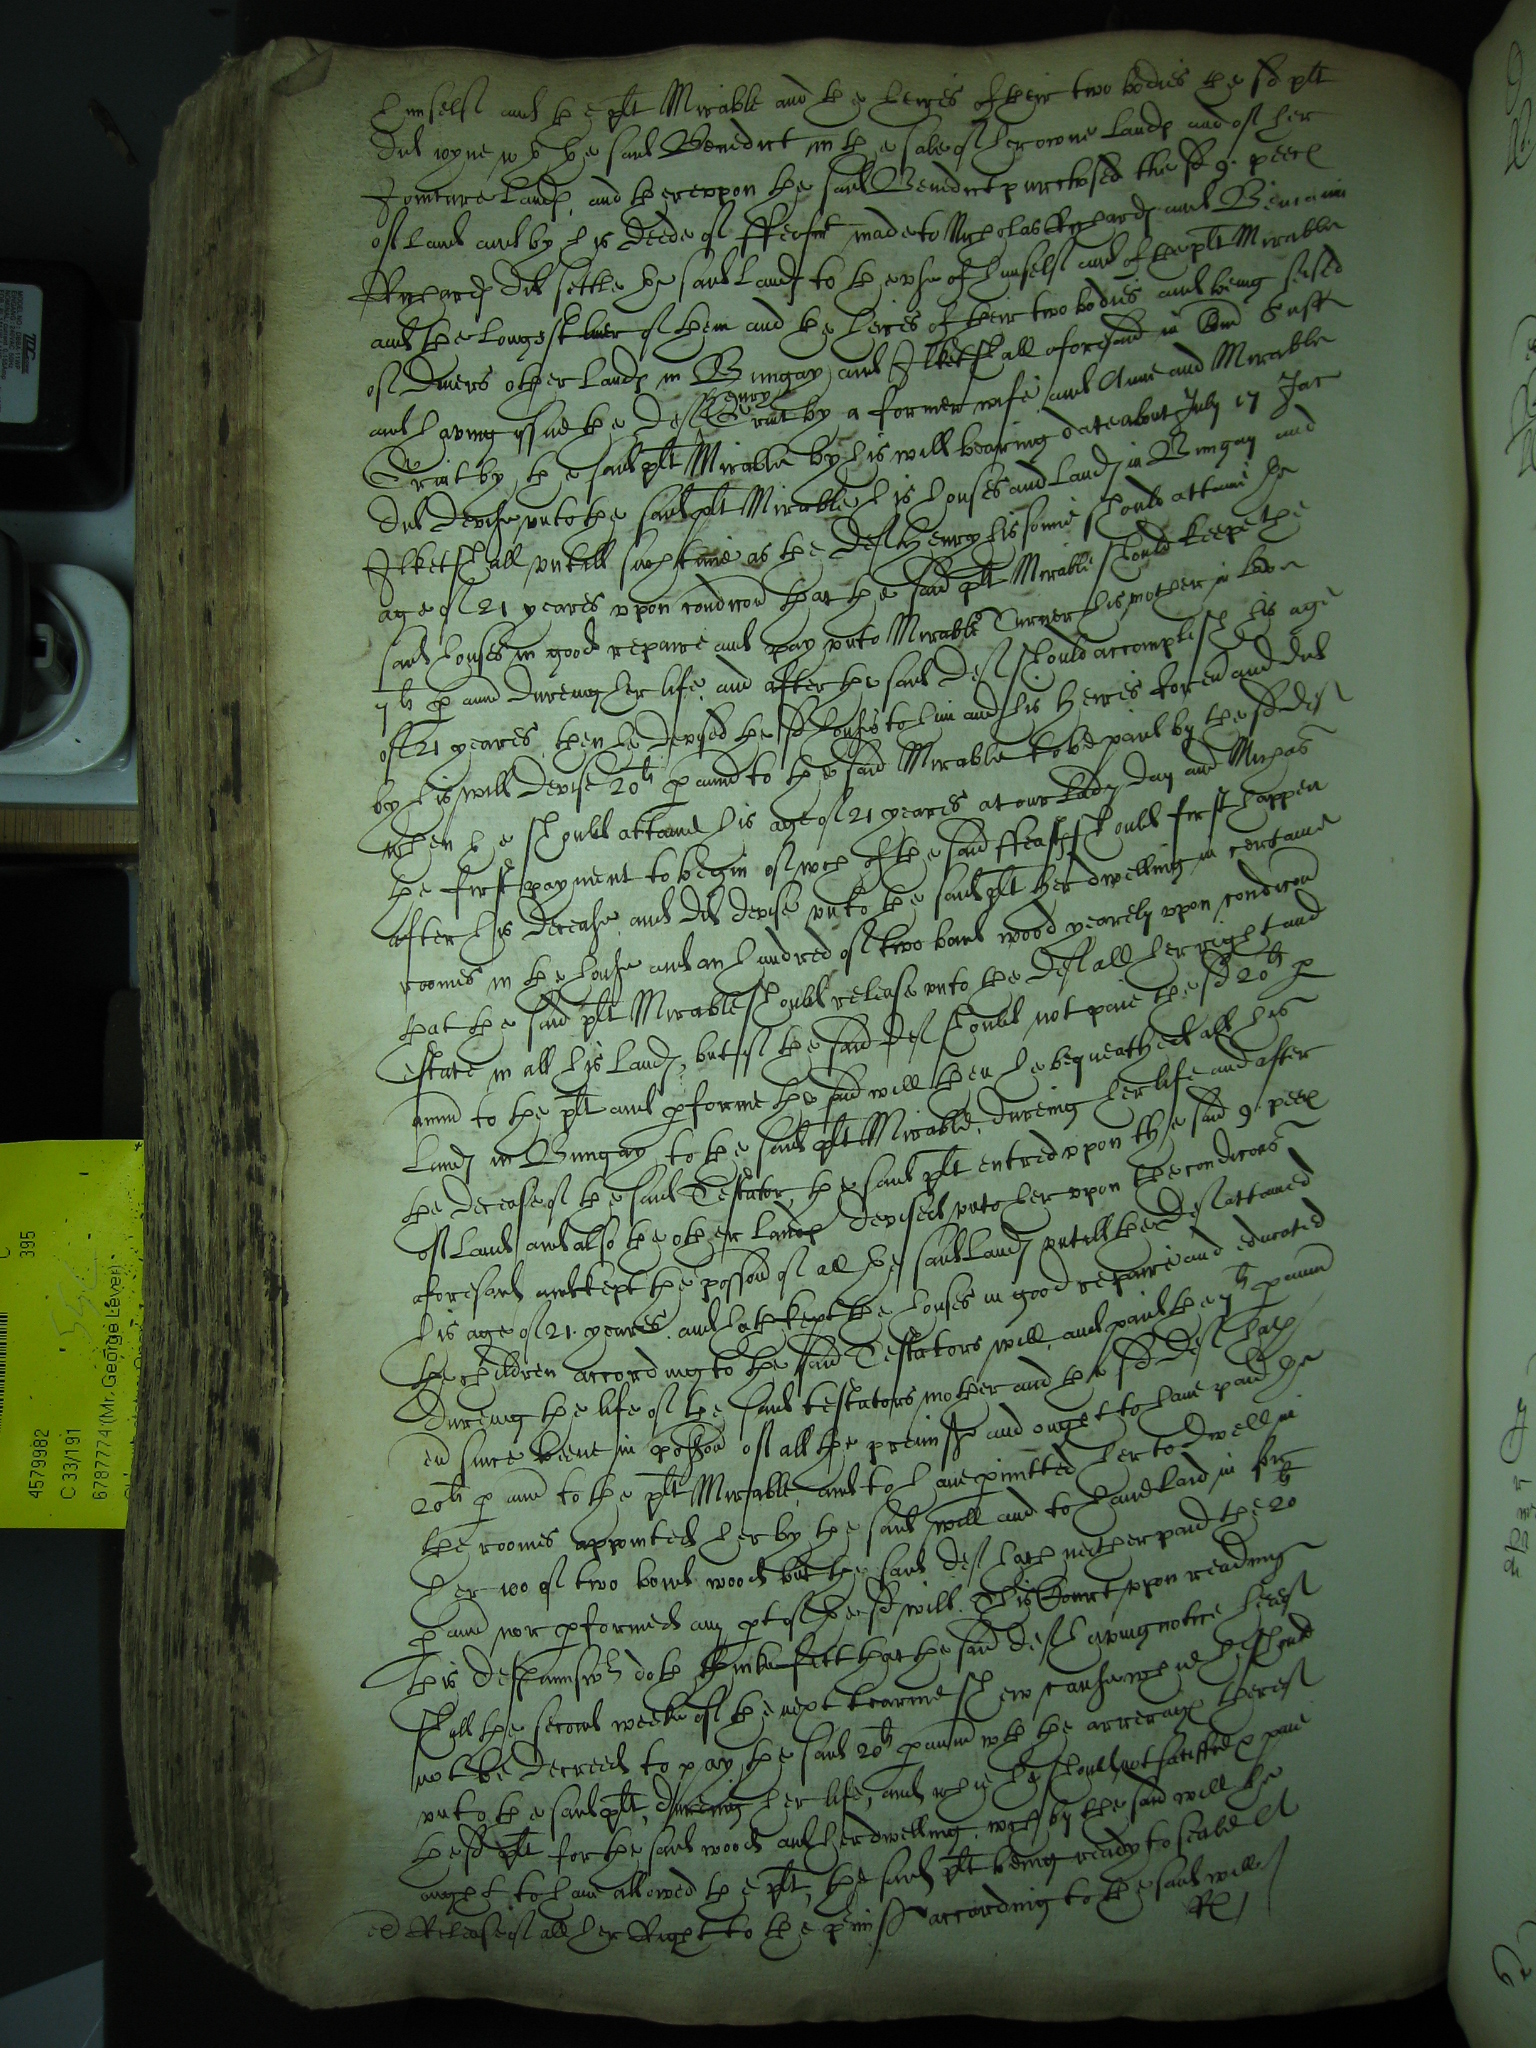 himselfe and the plt Mirable and the heires of their two bodies the sd plt
did ioyne wth the said Benedict in the sale of her owne Lands and of her
Jointure Lands, and therevpon the said Benedict purchased the sd 9. peeces
of Land and by his deede of ffeofmt made to Nicholas and Beniamin
did settle the said Lands to the vse of himselfe and of the plt Mirable
and the longest liuer of them and the heires of their two bodies and being seised
of diuers other Lands in Bungay and Ilketshall aforesaid in Com Suff
and having yssue the deft Henry by a former wife and Anne and Mirable
by the said plt Mirable by his will bearing date about July 17 Jac
did devise vnto the said plt Mirable his houses and Lands in Bungay and
Ilketshall vntill such time as the deft Henry his sonne should attaine the
age of 21 yeares vpon condicon that the said plt Mirable should keepe the
said houses in good repaire and pay vnto Mirable Turner his mother in Lawe
7li p ann dureing her life, and after the said deft should accomplish his age
of 21 yeares, then he devised the sd houses to him and his heires for eu and did
by his will devise 20li p annu to the said Mirable to be paid by the sd deft
when he should attaine his age of 21 yeares at our Lady day and Michas
the first payment to begin at wch of the said ffeasts should first happen
after his decease, and did devise vnto the said plt her dwelling in certaine
roomes in the house and an hundred of two band wood yearely vpon condicon
that the said plt Mirable should release vnto the deft all her right and
estate in all his Lands, but if the said deft should not paie the sd 20li p
annu to the plt and pforme the said will then he bequeathed all his
Lands in Bungay to the said plt Mirable, dureing her life and after
the decease of the said Testator the said plt entred vpon the said 9. peeces
of Land and also the other Lands devised vnto her vpon the condicons
aforesaid and kept the possion of all the said Lands vntill the Deft attained
his age of 21. yeares. and hath kept the houses in good repaire and educated
the children according to the said Testators will, and paid the 7li p annu
dureing the life of the said testators mother and the sd Deft hath
eu since beene in possion of all the premisses and ought to haue paid the
20li p ann to the plt Mirable, and to haue pmitted her to dwell in
the roomes appointed her by the said will and to haue Laid in for
her 100 of two bond wood but the said deft hath neither paid the 20li
p ann nor pformed any pt of the sd will. This Court vpon reading
this defts answr doth thinke fitt that the said deft having notice hereof
shall the second weeke of the next tearme shew cause why he should
not be decreed to pay the said 20li p annu wth the arrerages thereof
vnto the said plt, dureing her life, and why he should not satisfie & paie
the sd plt for the said wood and her dwelling wch by the said will she
ought to haue allowed the plt, the said plt being ready to seale a
Release of all her Right to the pmisses according to the said will